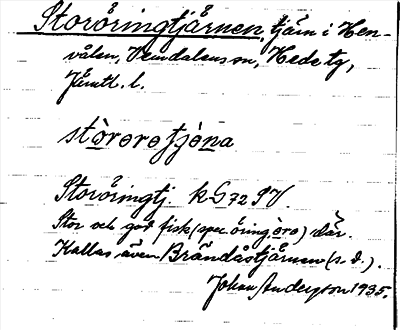 Storöringtjärnen, tjärn i Hen-
vålen, Vemdalens sn, Hede tg,
Jämtl. l.
stòrorotjo̱na
Storöringtj. kG72 9V.
Stor och god fisk (spec. öring òro) där.
Kallas även Brändåstjärnen (s. d.).
Johan Anderson 1935.